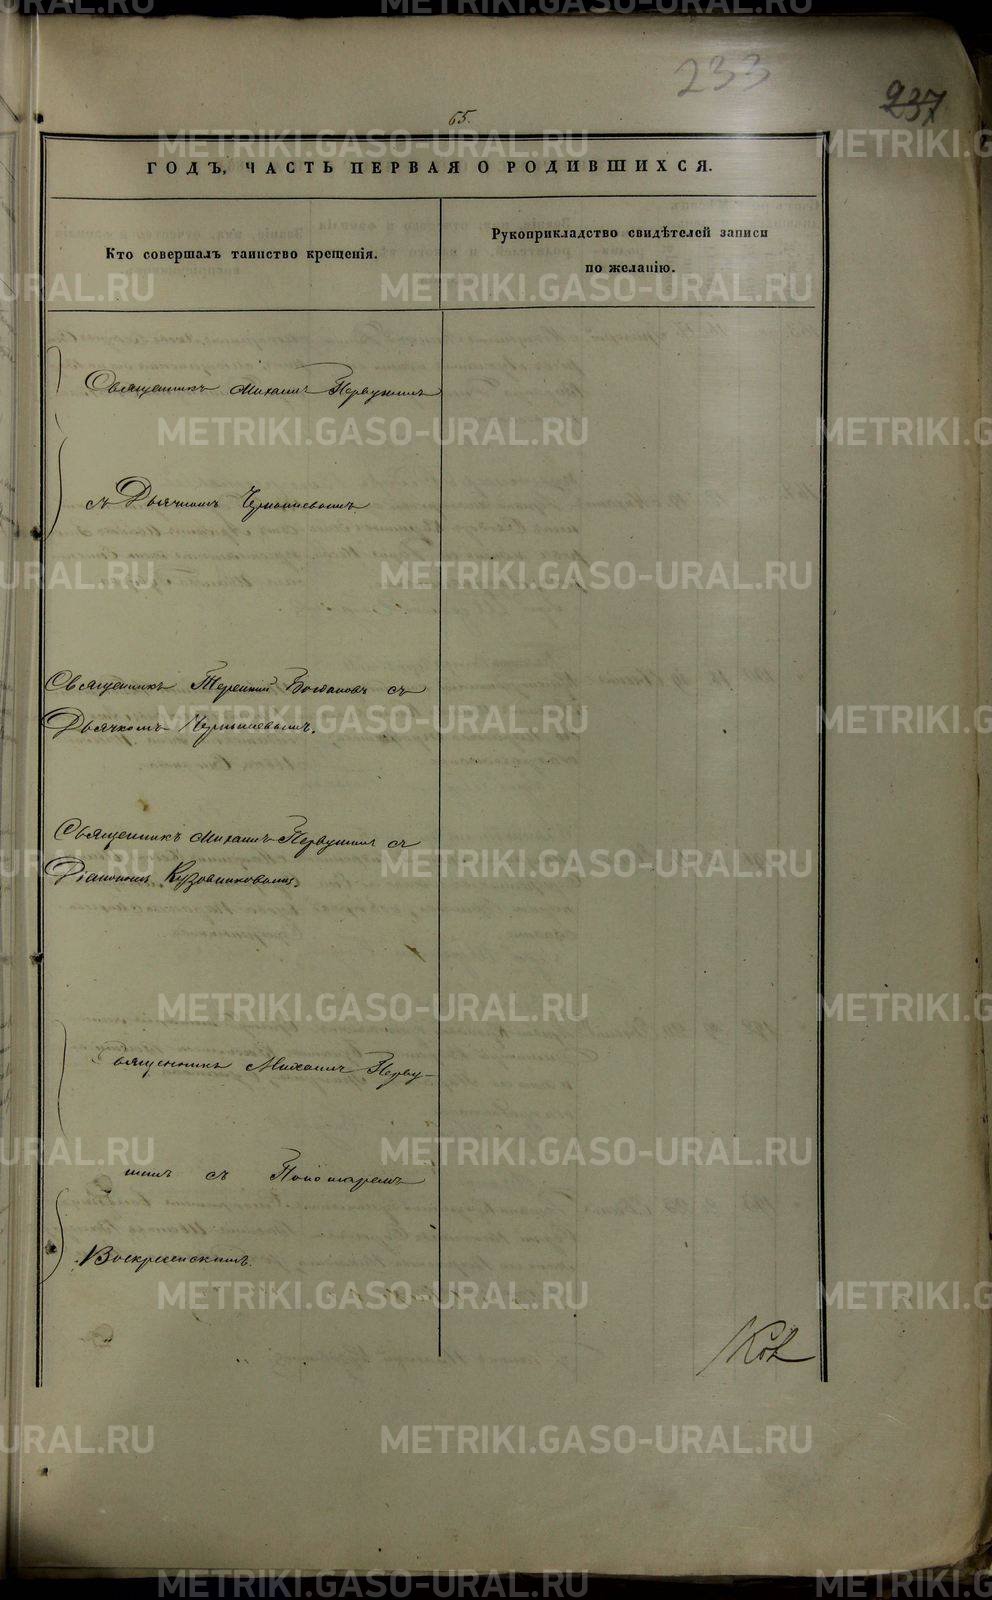 METRIKI.GASO-URAL.RU
233
237
65.
ГОДЪ, ЧАСТЬ ПЕРВАЯ О РОДИВШИХСЯ.
Кто совершалъ таинство крещенія.
Рукоприкладство свидѣтелей записи
по желанію.
Священникъ Михаилъ Первушинъ
съ Дьячкомъ Чернышевымъ
Священникъ Терентій Богдановъ съ
Дьячкомъ Чернышевымъ.
Священникъ Михаилъ Первушинъ съ
Діакономъ Кузовниковымъ.
Священникъ Михаилъ Перву-
шинъ съ Пономаремъ
Воскресенскимъ.